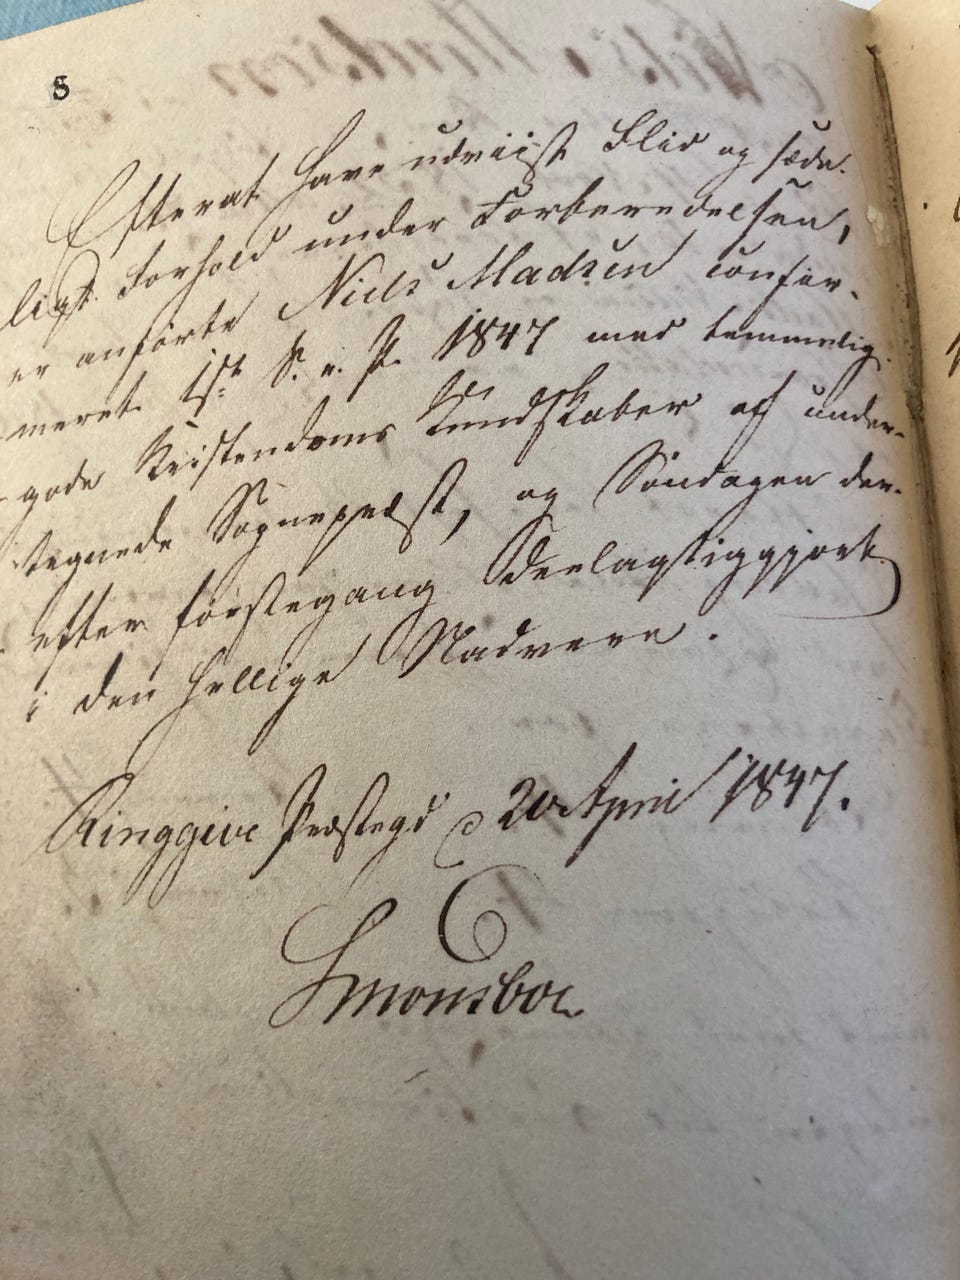 8
Efterat have udviist Flid og sæde-
ligt Forhold under Forberedelsen,
er anførte Niels Madsen confir-
meret 1st S. e. P. 1847 med temmelig
gode Kristendoms Kundskaber af under-
tegnede Sognepræst, og Søndagen der-
efter førstegang deelagtiggjort
i den hellige Nadvere.
Ringgive Præstegd d 20 April 1847.